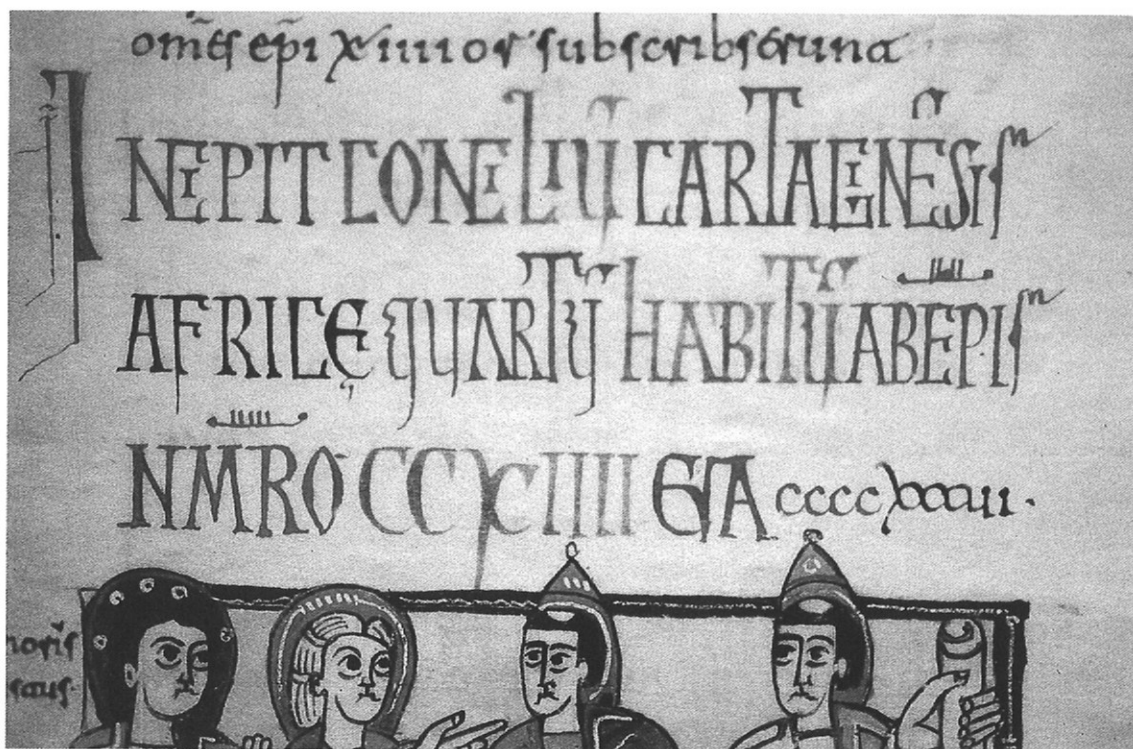 om̅s ep̅i xiiiior subscribserunt
INCIPIT CONCILIU̅ CARTAGENE̅SIS
AFRICĘ QUARTU̅ HABITU̅ AB EPIS
NM̅RO CCXCIIII ERA ccccxxxvii.
noris
saus.